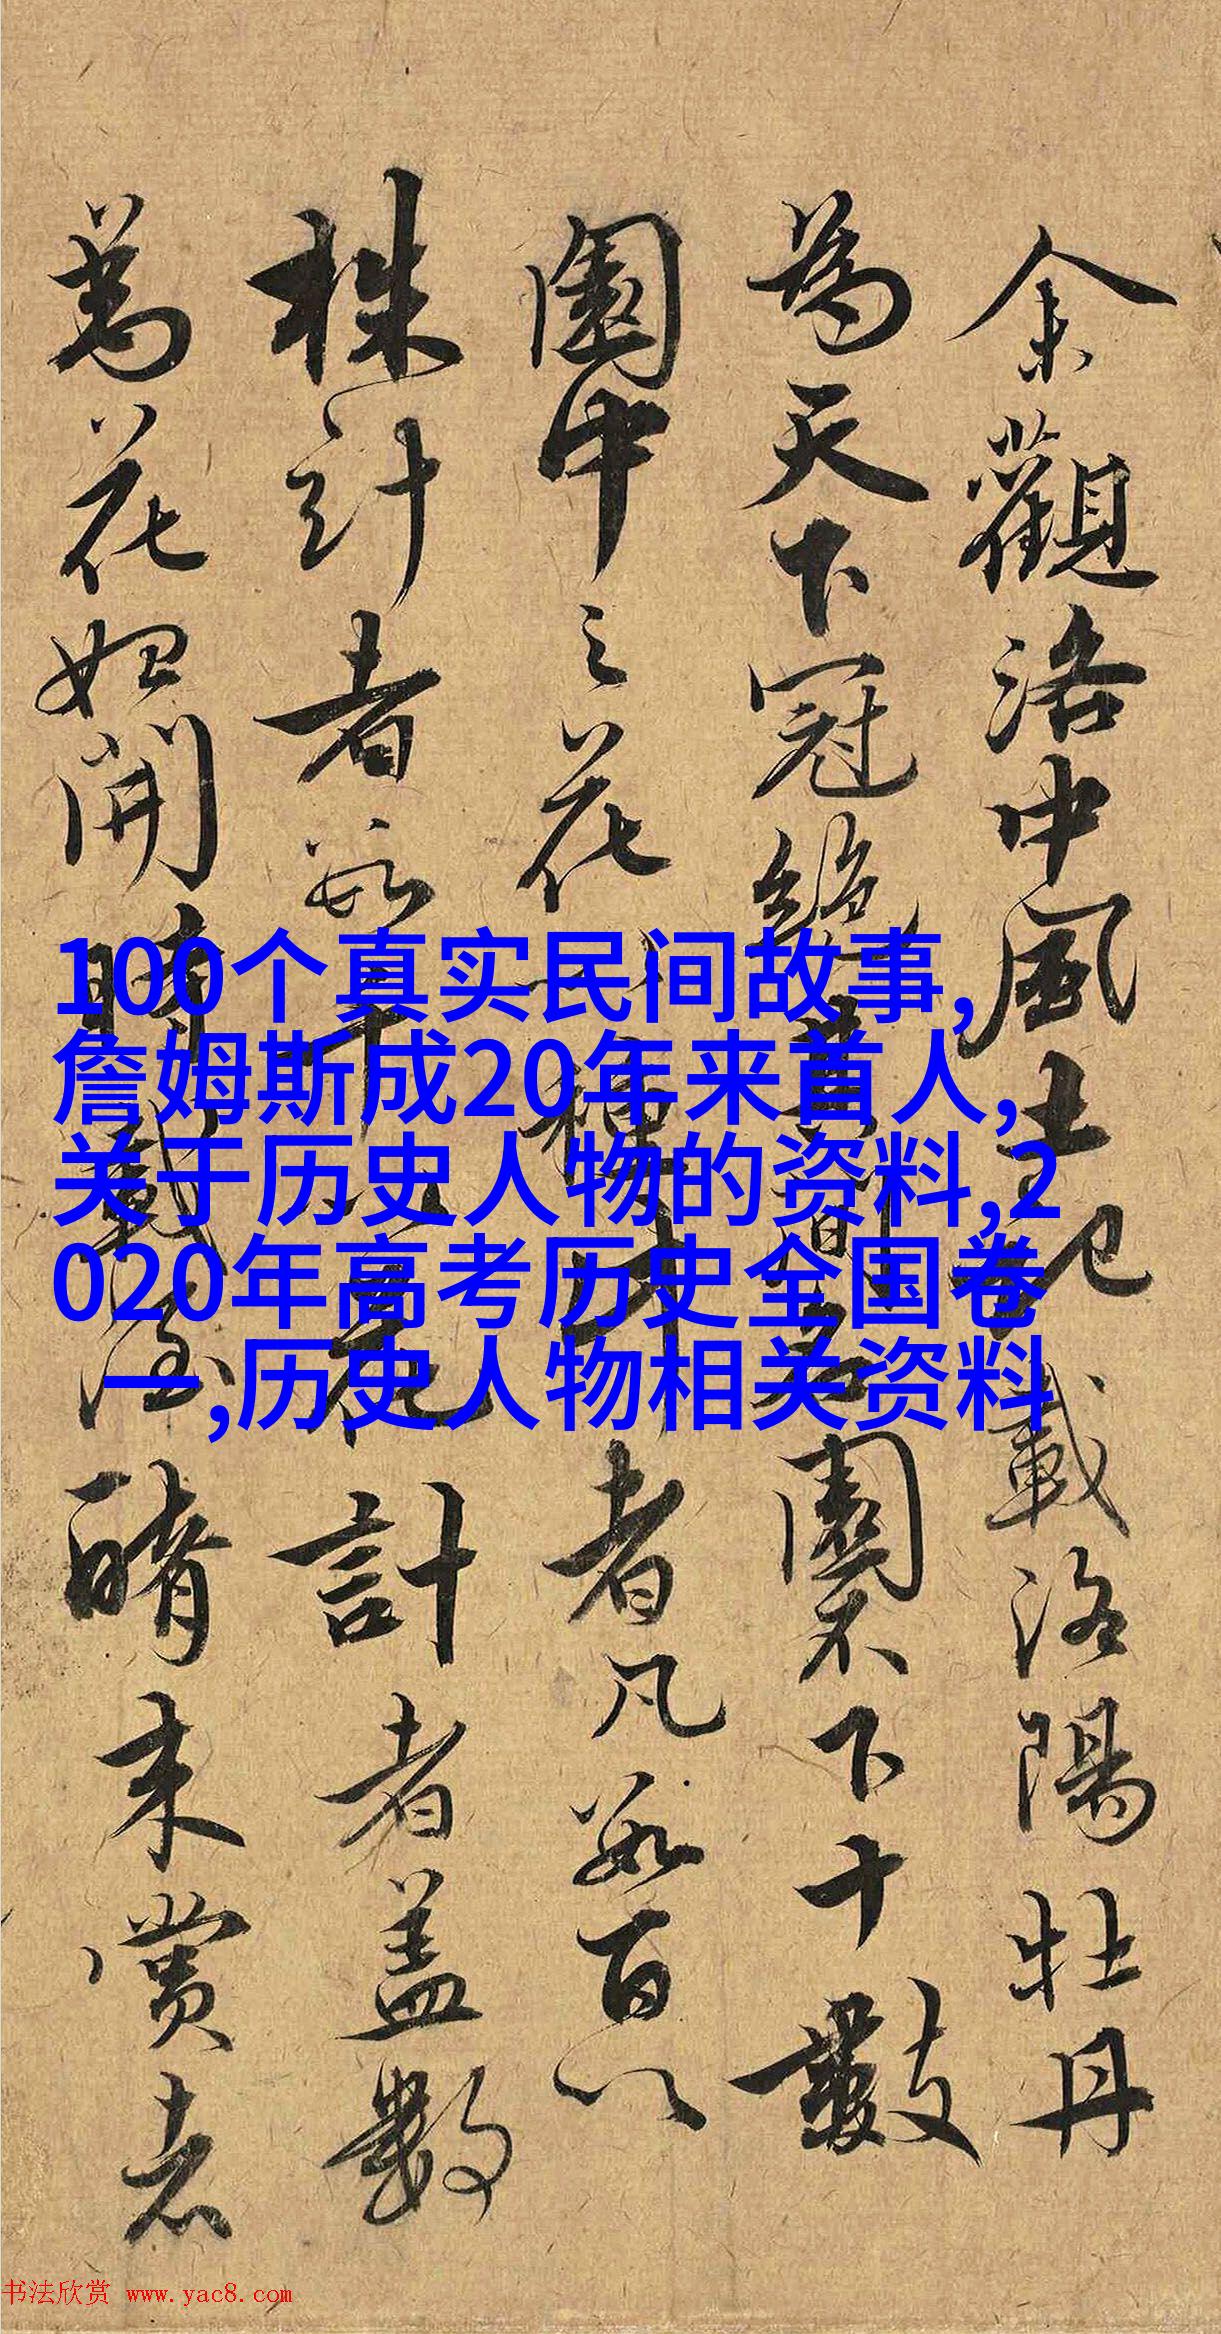 余觀洛中風土記載洛陽牡丹
為天下冠絶其間名園不下十數
園中之花以種計者凡數百以
株計者數千以花計者蓋數
萬花始開時載酒來賞者
100个真实民间故事,
詹姆斯成20年来首人,
关于历史人物的资料,2
020年高考历史全国卷
一,历史人物相关资料
书法欣赏 www.yac8.com